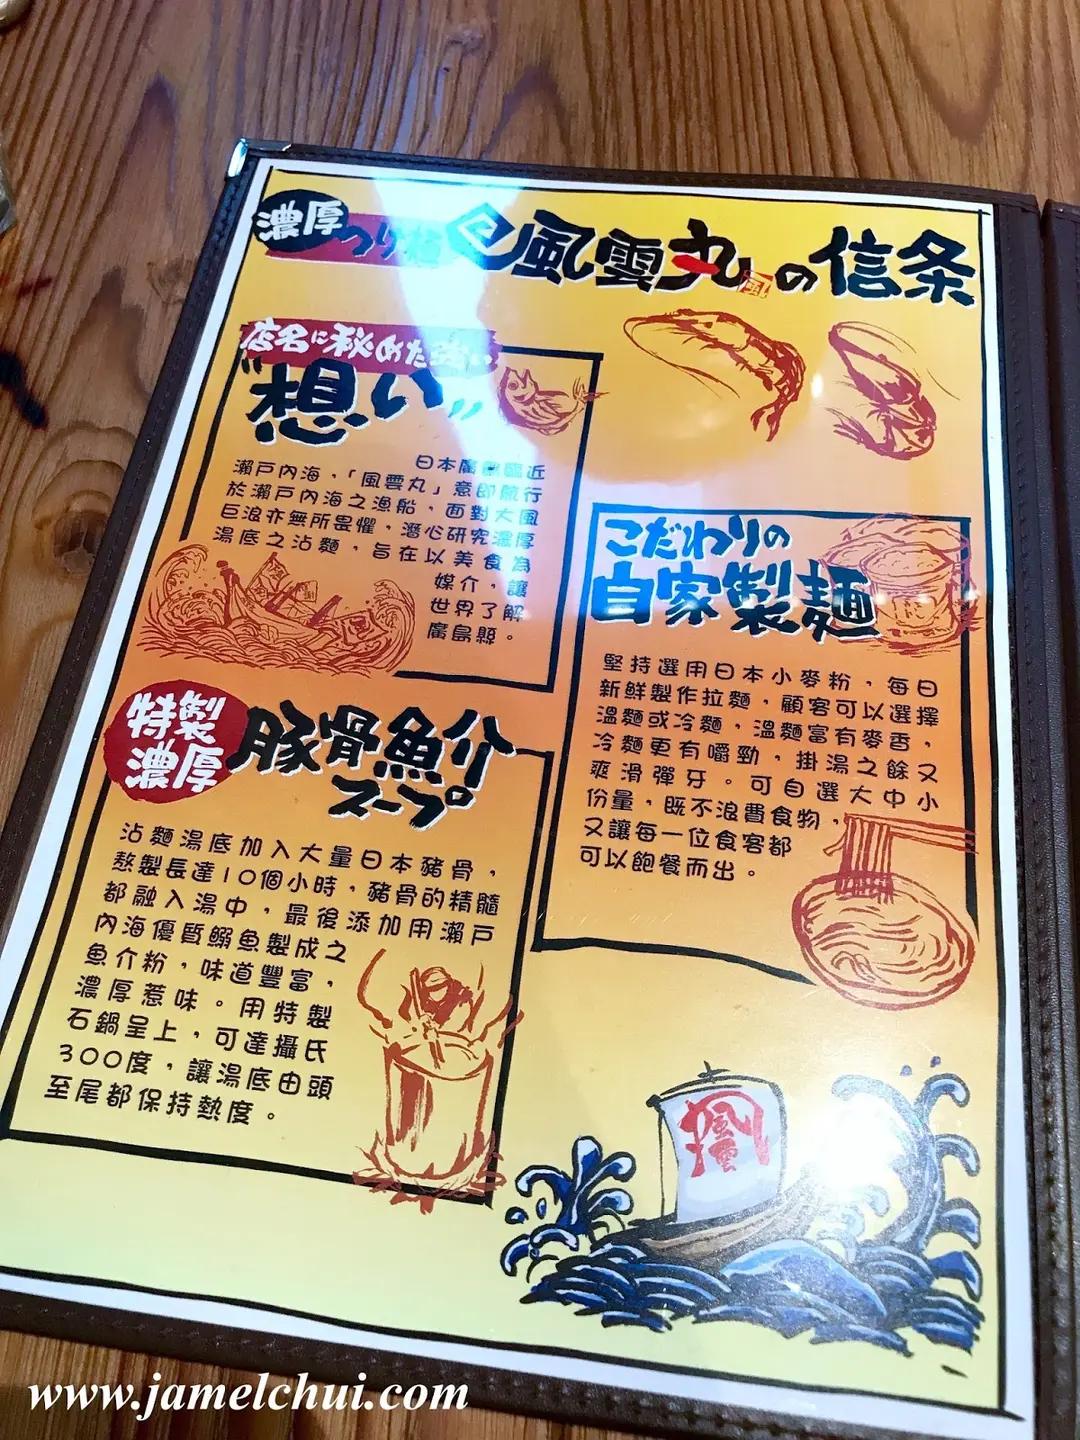 濃厚つけ麺 風雲丸の信条
店名に秘めた強い
"想い"
日本廣島臨近
瀨戶內海,「風雲丸」意即航行
於瀨戶內海之漁船,面對大風
巨浪亦無所畏懼,潛心研究濃厚
湯底之沾麵,旨在以美食為
媒介,讓
世界了解
廣島縣。
こだわりの
自家製麺
堅持選用日本小麥粉,每日
新鮮製作拉麵,顧客可以選擇
溫麵或冷麵,溫麵富有麥香,
冷麵更有嚼勁,掛湯之餘又
爽滑彈牙。可自選大中小
份量,既不浪費食物,
又讓每一位食客都
可以飽餐而出。
特製
濃厚
豚骨魚介
スープ
沾麵湯底加入大量日本豬骨,
熬製長達10個小時,豬骨的精髓
都融入湯中,最後添加用瀨戶
內海優質鰯魚製成之
魚介粉,味道豐富,
濃厚惹味。用特製
石鍋呈上,可達攝氏
300度,讓湯底由頭
至尾都保持熱度。
風雲
www.jamelchui.com